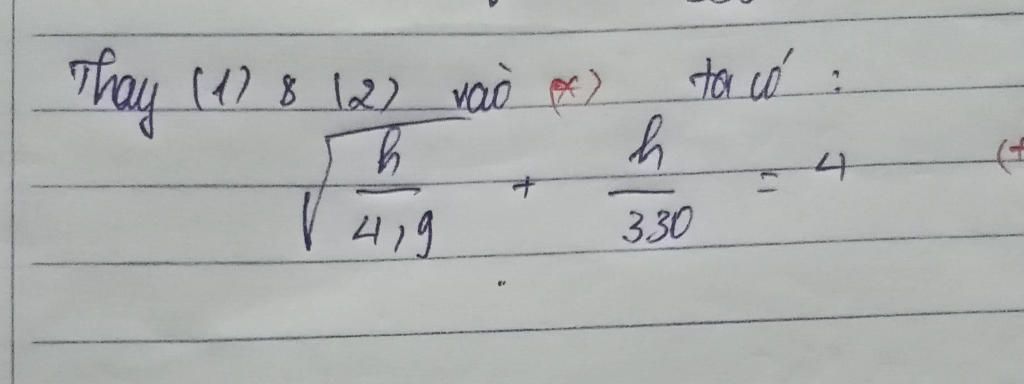 Thay (1) & (2) vào (*) ta có:
√(h/4,9) + h/330 = 4